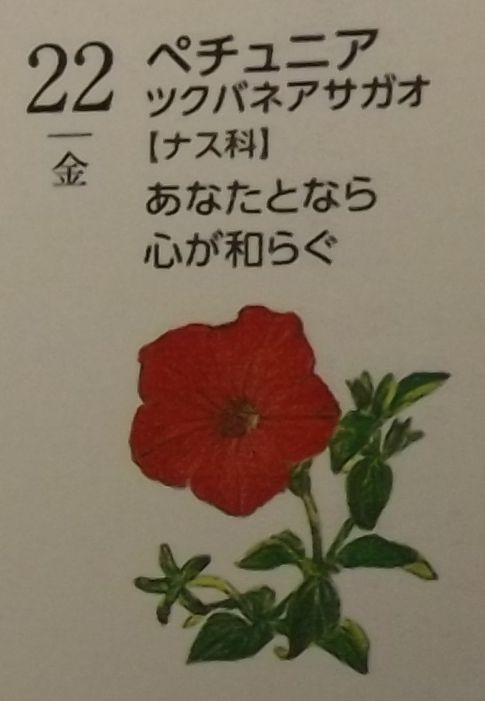 22
金
ペチュニア
ツクバネアサガオ
【ナス科】
あなたとなら
心が和らぐ